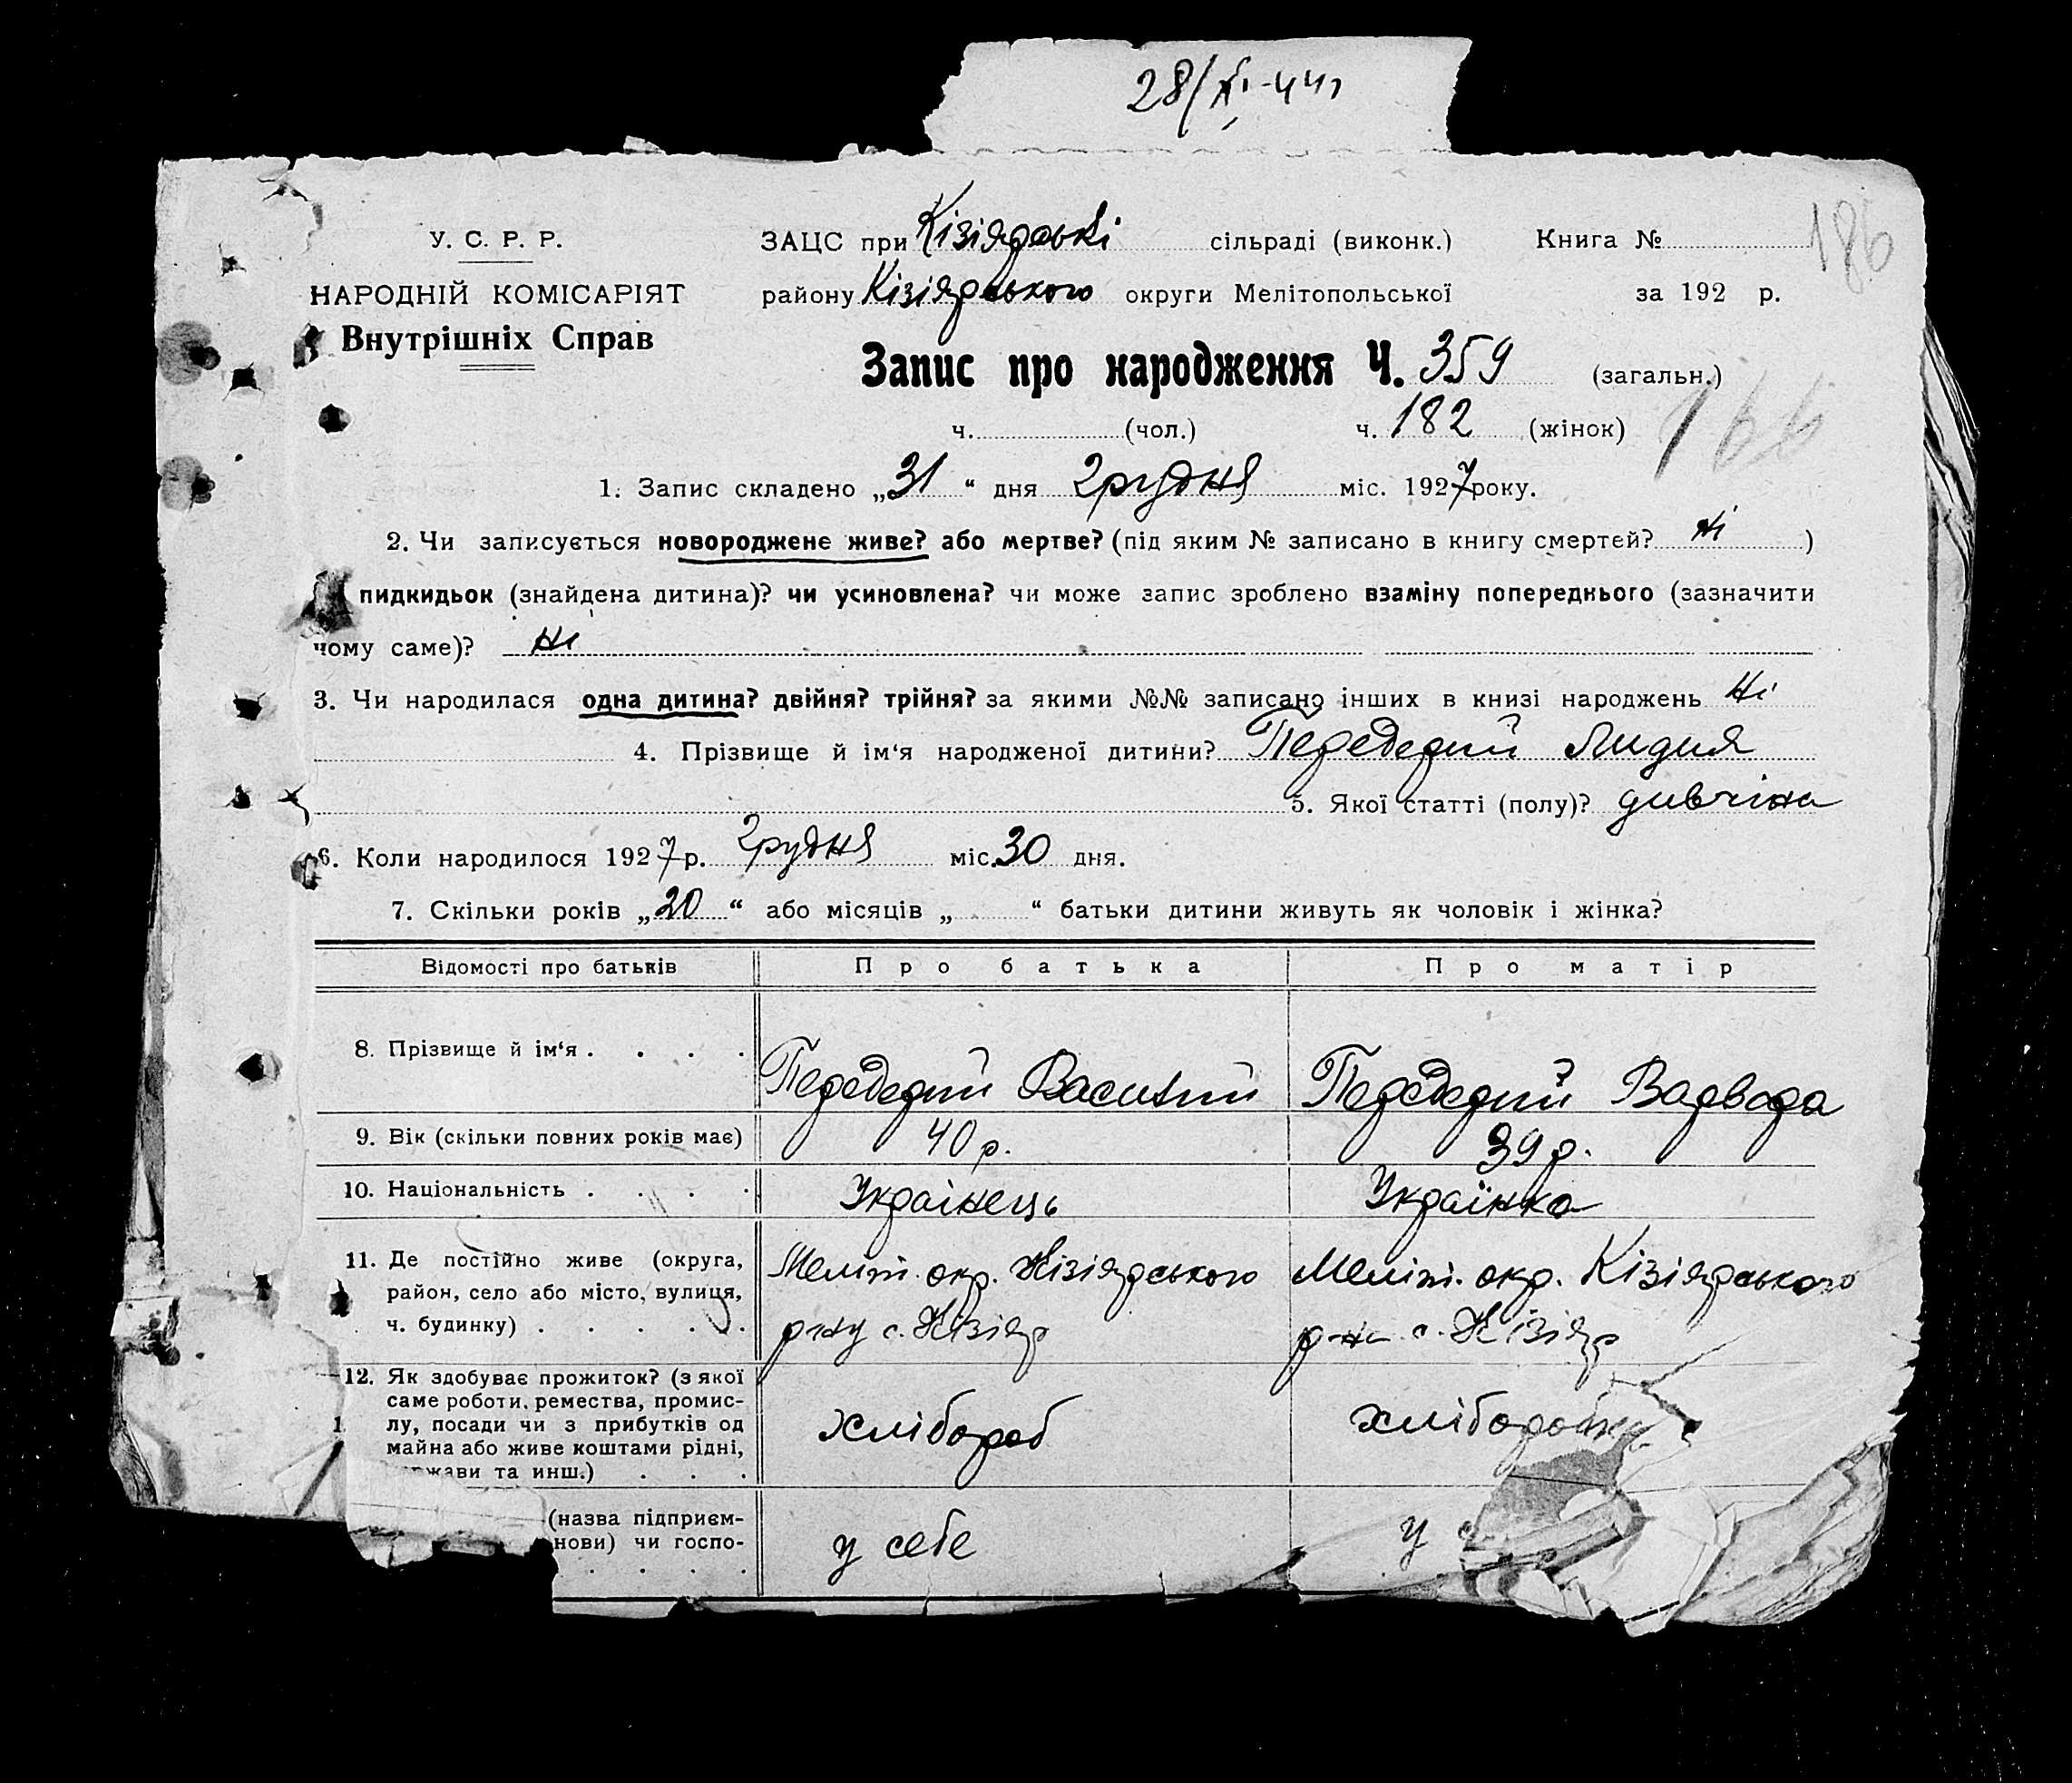 28/XI-44г
186
У. С. Р. Р.
НАРОДНІЙ КОМІСАРІЯТ
Внутрішніх Справ
ЗАЦС при Кізіярські сільраді (виконк.) Книга №
району Кізіярського округи Мелітопольської за 192 р.
Запис про народження Ч. 359 (загальн.)
ч. (чол.) ч. 182 (жінок)
166
1. Запис складено „31“ дня грудня міс. 1927 року.
2. Чи записується новороджене живе? або мертве? (під яким № записано в книгу смертей? ні )
пидкидьок (знайдена дитина)? чи усиновлена? чи може запис зроблено взаміну попереднього (зазначити
чому саме)? ні
3. Чи народилася одна дитина? двійня? трійня? за якими №№ записано інших в книзі народжень ні
4. Прізвище й ім‘я народженої дитини? Передерий Лидия
5. Якої статті (полу)? дивчіна
6. Коли народилося 1927 р. грудня міс. 30 дня.
7. Скільки років „20“ або місяців „ “ батьки дитини живуть як чоловік і жінка?
Відомості про батьків Про батька Про матір
8. Прізвище й ім‘я . . . . Передерий Василий Передерий Варвара
9. Вік (скільки повних років має) 40 р. 39 р.
10. Національність . . . . Українець Українка
11. Де постійно живе (округа, Меліт. окр. Кізіярського Меліт. окр. Кізіярського
район, село або місто, вулиця, р-ну с. Кізіяр р-на с. Кізіяр
ч. будинку) . . . . . .
12. Як здобуває прожиток? (з якої
саме роботи, ремества, промис-
лу, посади чи з прибутків од хлібороб хліборобка
майна або живе коштами рідні,
держави та инш.) . . .
(назва підприєм-
нови) чи госпо- у себе у